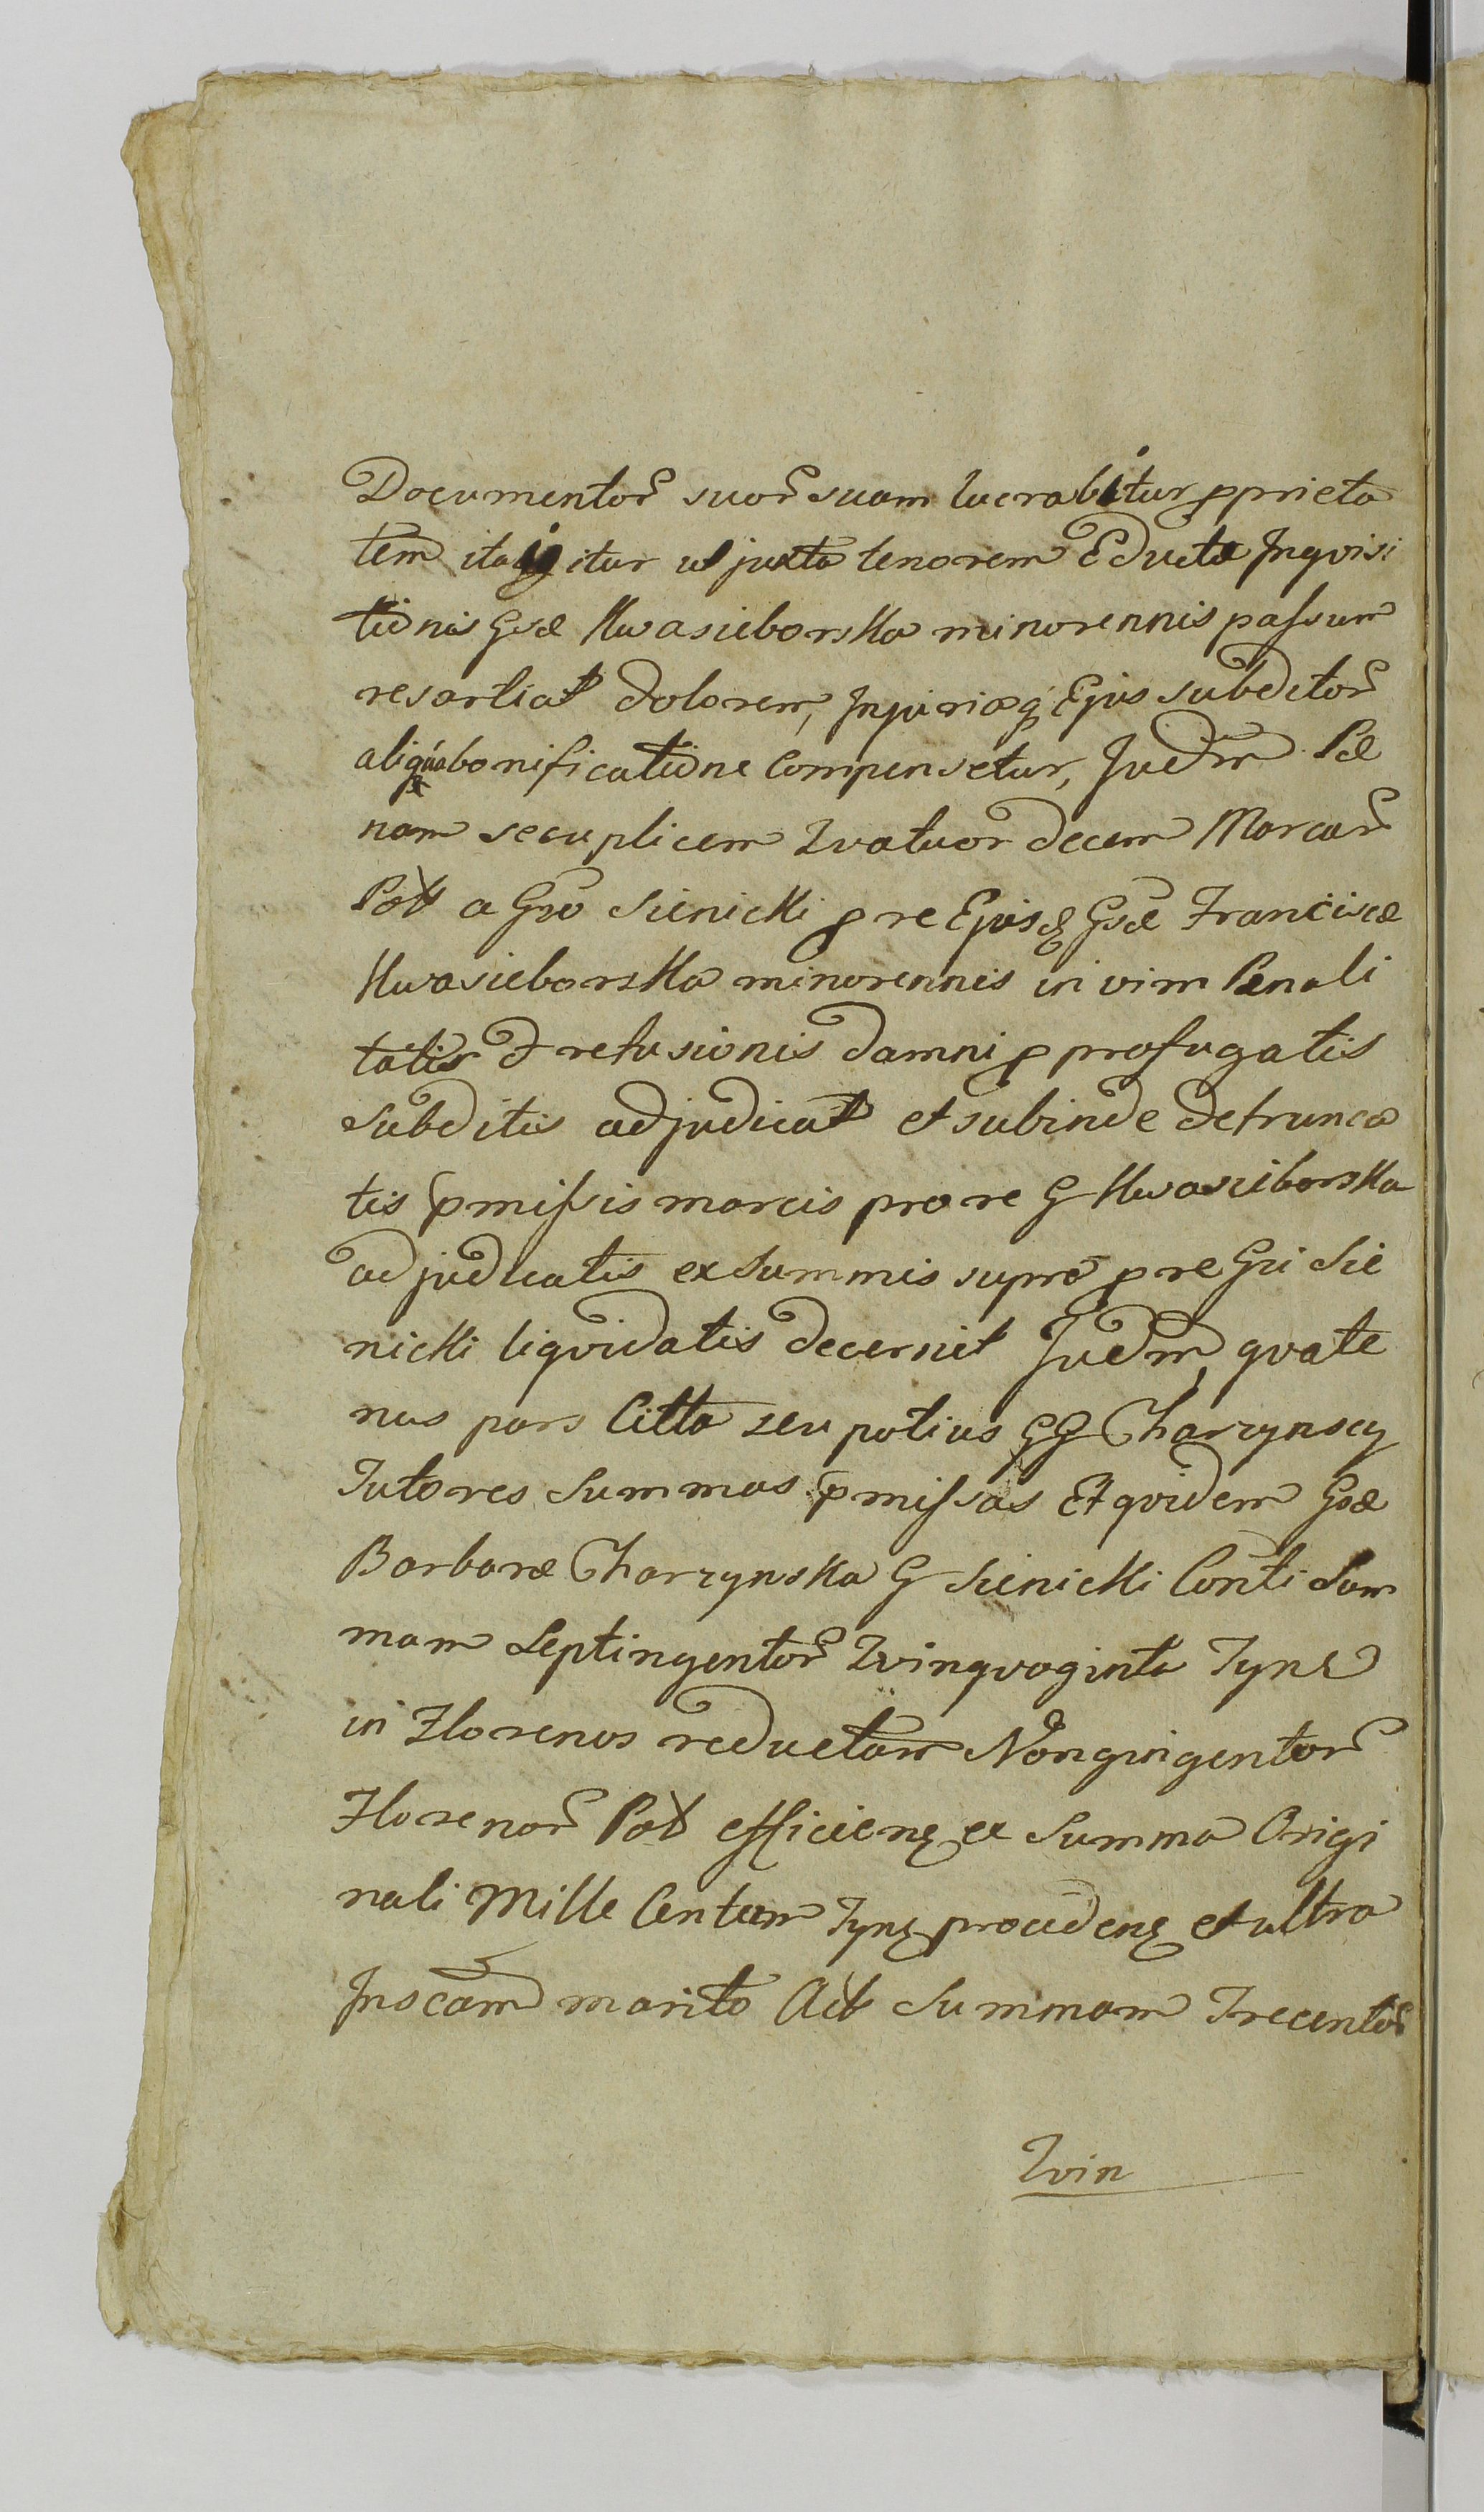 Documentor̃ suor̃ suam lucrabitur pprieta
tem itaq́ igitur ut juxta tenorem Educta Inqvisi
tionis Gsæ Kwasieborska minorennis passum
resartiat dolorem, Injuriæq́ Ejus subditor̃
aliqua bonificatione Compensetur, Judm̃ Pæ
nam secuplicem Qvatuor decem Marcar̃
Pol a Gso Sienicki p re Ejusdę Gsæ Franciscæ
Kwasieborska minorennis in vim Penali
tatis et refusionis damni p profugatis
Subditis adjudicat et subinde detrunca
tis pmissis marcis pro re G Kwasieborska
adjudicatis ex Summis supra p re Gsi Sie
nicki liqvidatis decernit Judm̃, qvate
nus pars Citta seu potius GG Charzynscy
Tutores Summas pmissas Et qvidem Gsæ
Barbaræ Charzynska G Sienicki Conti Sum
mam Septingentor̃ Qvinqvaginta Tynf
in Florenos reductam Nongvingentor̃
Florenor̃ Pol efficienę ex Summa Origi
nali Mille Centum Tynf procedenę et ultra
Inscãm marito Act Summam Trecentor̃
Qvin